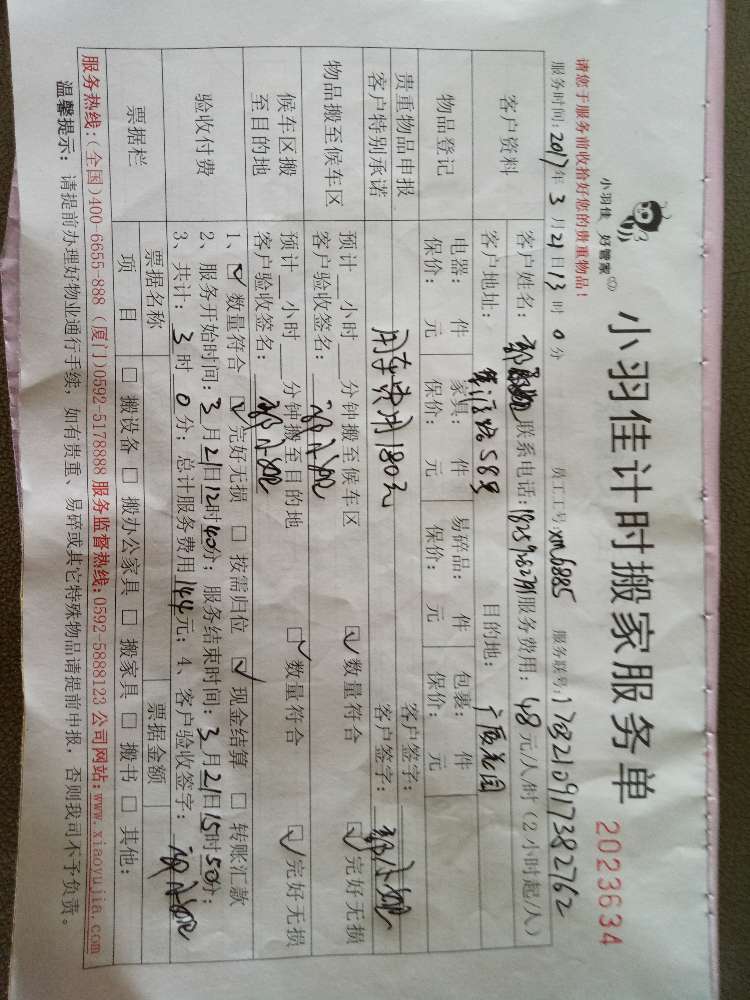 小羽佳 好管家
小羽佳计时搬家服务单
2023634
请您于服务前收拾好您的贵重物品!
员工工号:xm6885 服务联号:1703210917382762
服务时间:2017年3月21日13时0分
客户资料
客户姓名: 联系电话: 服务费用:48元/人/时(2小时起/人)
客户地址: 588号 目的地: 广顺花园
物品登记
电器: 件 家具: 件 易碎品: 件 包裹: 件
保价: 元 保价: 元 保价: 元 保价: 元
贵重物品申报 客户签字:
客户特别承诺 用车费用180元 客户签字:
物品搬至候车区
预计 小时 分钟搬至候车区 ☑数量符合 ☑完好无损
客户验收签名:
候车区搬至目的地
预计 小时 分钟搬至目的地 ☑数量符合 ☑完好无损
客户验收签名:
验收付费
1、☑数量符合 ☑完好无损 □按需归位 ☑现金结算 □转账汇款
2、服务开始时间:3月21日12时40分;服务结束时间:3月21日15时50分;
3、共计:3时0分;总计服务费用144元;4、客户验收签字:
票据栏
票据名称 票据金额
项目 □搬设备 □搬办公家具 □搬家具 □搬书 □其他:
服务热线:(全国)400-6655-888 (厦门)0592-5178888 服务监督热线:0592-5888123 公司网站:www.xiaoyujia.com
温馨提示: 请提前办理好物业通行手续,如有贵重、易碎或其它特殊物品请提前申报,否则我司不予负责。